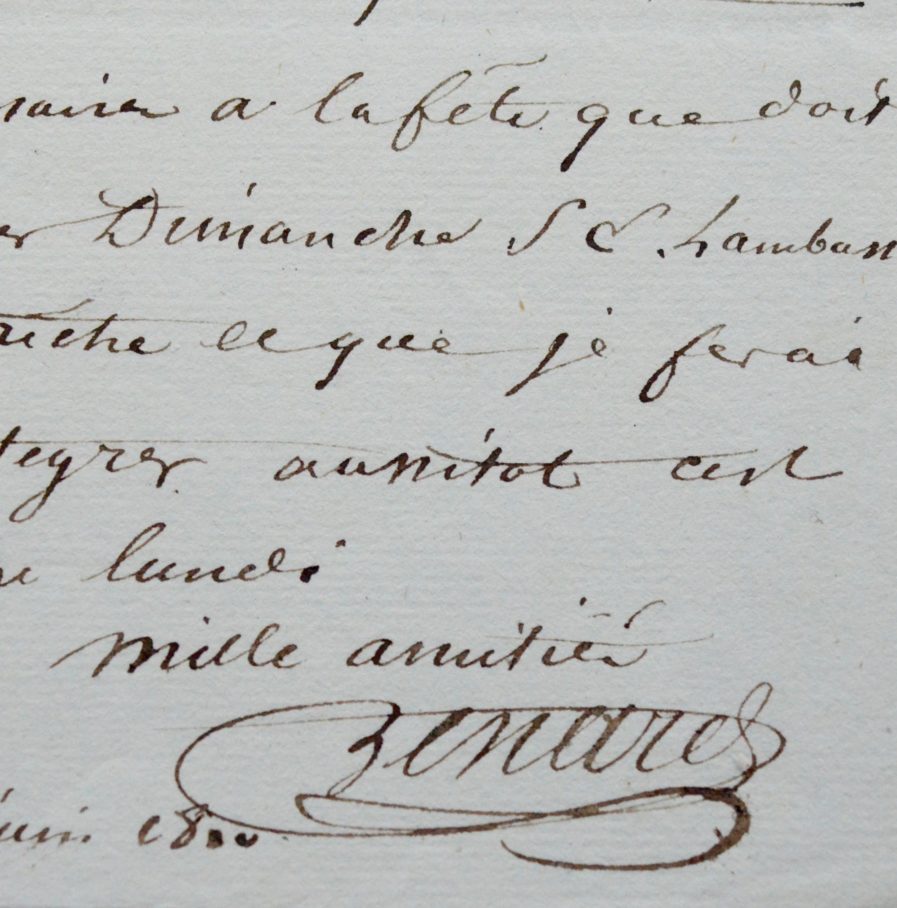 saires a la fête que doit
er Dimanche S. E. Lambass
riche et que je ferai
tegrer aussitot cest
lundi
mille amitiés
Benard
juin 18